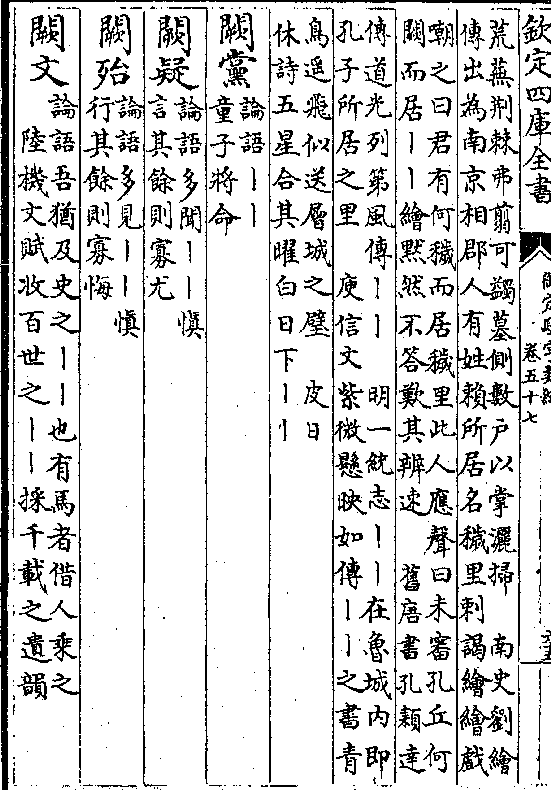 欽定四庫全書
御定駢字類編
卷五十七
荒蕪荆棘弗翦可蠲墓側數戶以掌灑掃　南史劉繪
傳出為南京相郡人有姓賴所居名穢里刺謁繪繪戲
嘲之曰君有何穢而居穢里此人應聲曰未審孔丘何
闕而居丨丨繪黙然不答歎其辨速　舊唐書孔穎達
傳道光列第風傳丨丨　明一統志丨丨在魯城内即
孔子所居之里　庾信文紫微懸映如傳丨丨之書青
鳥遥飛似送層城之璧　皮日
休詩五星合其曜白日下丨丨
闕黨
論語丨丨
童子將命
闕疑
論語多聞丨丨慎
言其餘則寡尤
闕殆
論語多見丨丨慎
行其餘則寡悔
闕文
論語吾猶及史之丨丨也有馬者借人乗之
陸機文賦收百世之丨丨採千載之遺韻